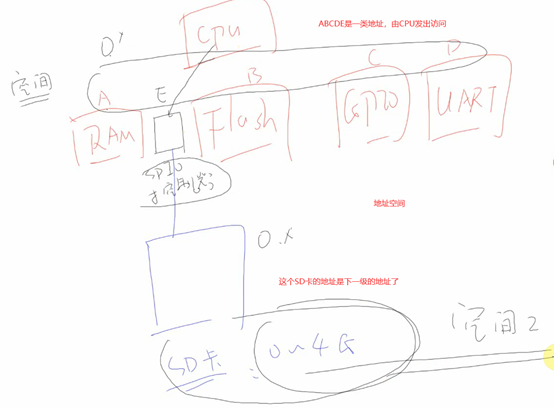 ABCDE是一类地址，由CPU发出访问
CPU
空间
A
E
B
C
D
RAM
Flash
GPIO
UART
SDIO
控制器
地址空间
0.X
这个SD卡的地址是下一级的地址了
SD卡
0~4G
空间2